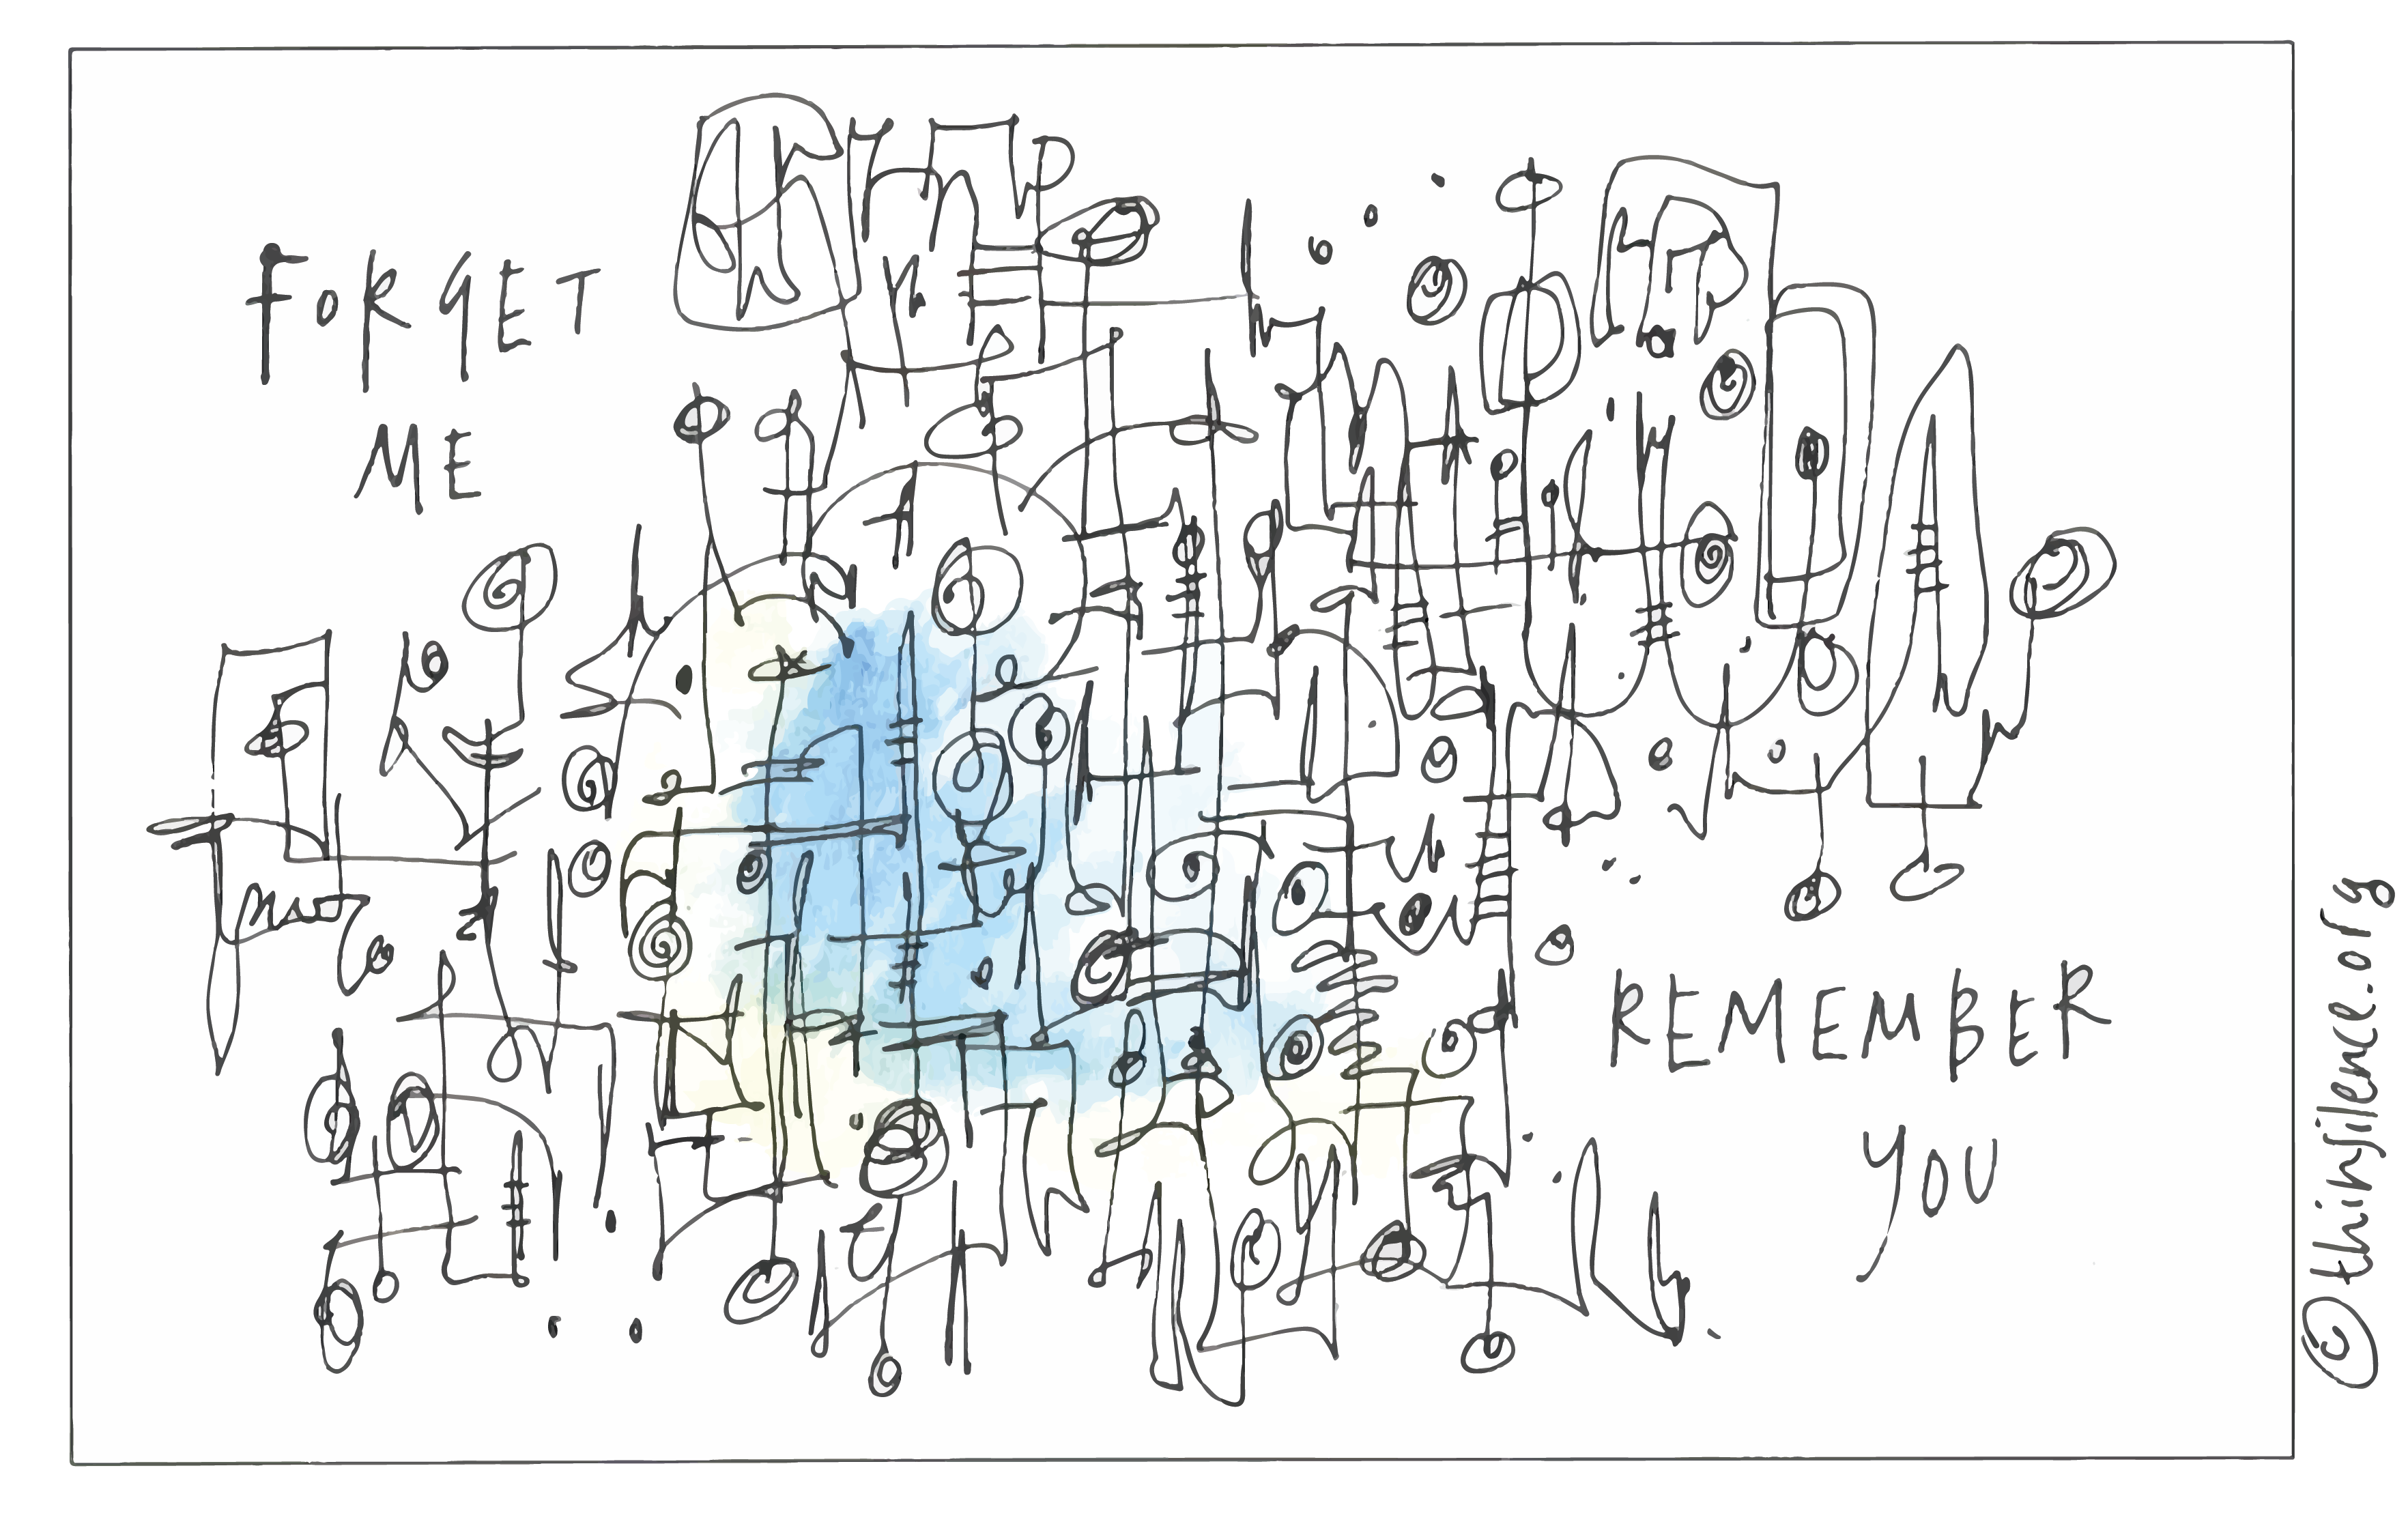 FORGET
ME
REMEMBER
YOU
© thinsilence.org